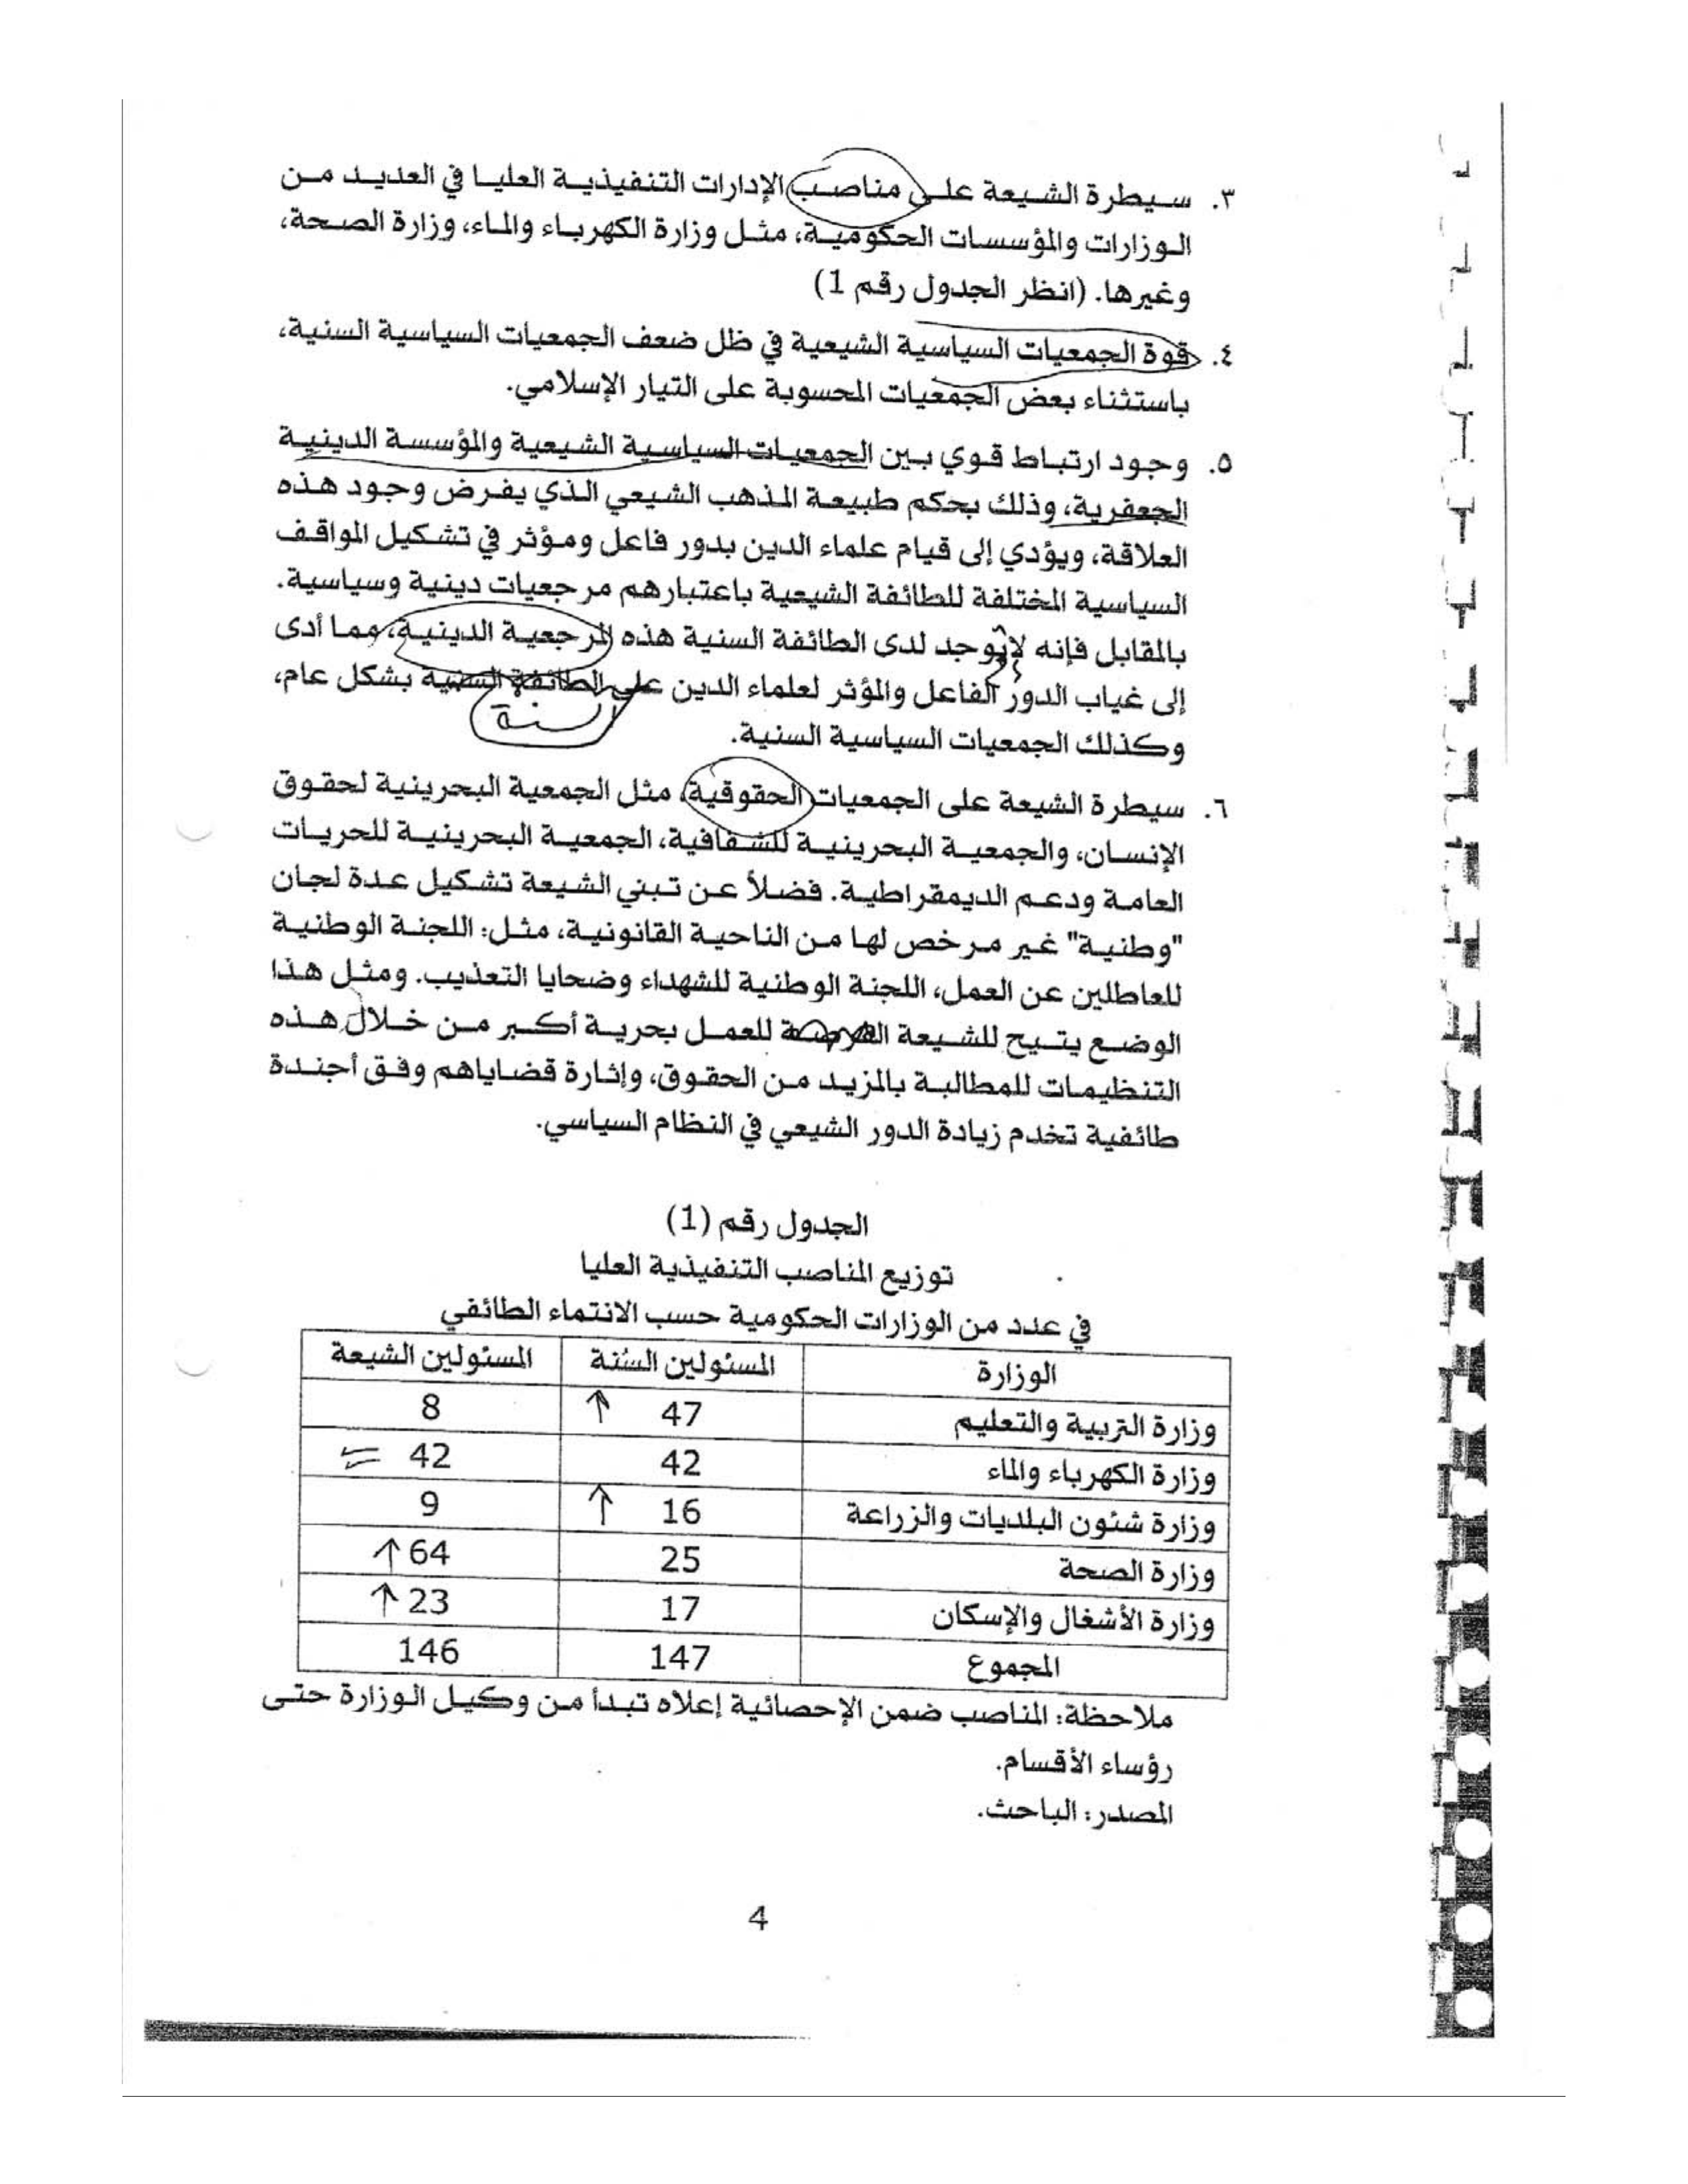 ٣. سيطرة الشيعة على مناصب الإدارات التنفيذية العليا في العديد من
الوزارات والمؤسسات الحكومية، مثل وزارة الكهرباء والماء، وزارة الصحة،
وغيرها. (انظر الجدول رقم 1)
٤. قوة الجمعيات السياسية الشيعية في ظل ضعف الجمعيات السياسية السنية،
باستثناء بعض الجمعيات المحسوبة على التيار الإسلامي.
٥. وجود ارتباط قوي بين الجمعيات السياسية الشيعية والمؤسسة الدينية
الجعفرية، وذلك بحكم طبيعة المذهب الشيعي الذي يفرض وجود هذه
العلاقة، ويؤدي إلى قيام علماء الدين بدور فاعل ومؤثر في تشكيل المواقف
السياسية المختلفة للطائفة الشيعية باعتبارهم مرجعيات دينية وسياسية.
بالمقابل فإنه لا يوجد لدى الطائفة السنية هذه المرجعية الدينية، مما أدى
إلى غياب الدور الفاعل والمؤثر لعلماء الدين على الطائفة السنية بشكل عام،
السنة
وكذلك الجمعيات السياسية السنية.
٦. سيطرة الشيعة على الجمعيات الحقوقية، مثل الجمعية البحرينية لحقوق
الإنسان، والجمعية البحرينية للشفافية، الجمعية البحرينية للحريات
العامة ودعم الديمقراطية. فضلاً عن تبني الشيعة تشكيل عدة لجان
"وطنية" غير مرخص لها من الناحية القانونية، مثل: اللجنة الوطنية
للعاطلين عن العمل، اللجنة الوطنية للشهداء وضحايا التعذيب. ومثل هذا
الوضع يتيح للشيعة الفرصة للعمل بحرية أكبر من خلال هذه
التنظيمات للمطالبة بالمزيد من الحقوق، وإثارة قضاياهم وفق أجندة
طائفية تخدم زيادة الدور الشيعي في النظام السياسي.
الجدول رقم (1)
توزيع المناصب التنفيذية العليا
في عدد من الوزارات الحكومية حسب الانتماء الطائفي
الوزارة المسئولين السُنة المسئولين الشيعة
وزارة التربية والتعليم 47 ↑ 8
وزارة الكهرباء والماء 42 42 =
وزارة شئون البلديات والزراعة 16 ↑ 9
وزارة الصحة 25 64 ↑
وزارة الأشغال والإسكان 17 23 ↑
المجموع 147 146
ملاحظة: المناصب ضمن الإحصائية إعلاه تبدأ من وكيل الوزارة حتى
رؤساء الأقسام.
المصدر: الباحث.
4